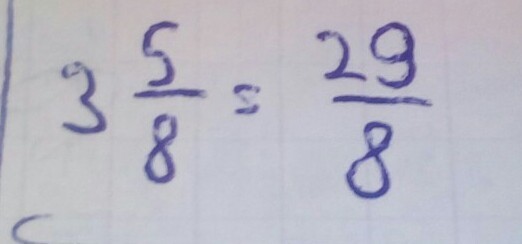 3 5/8 = 29/8